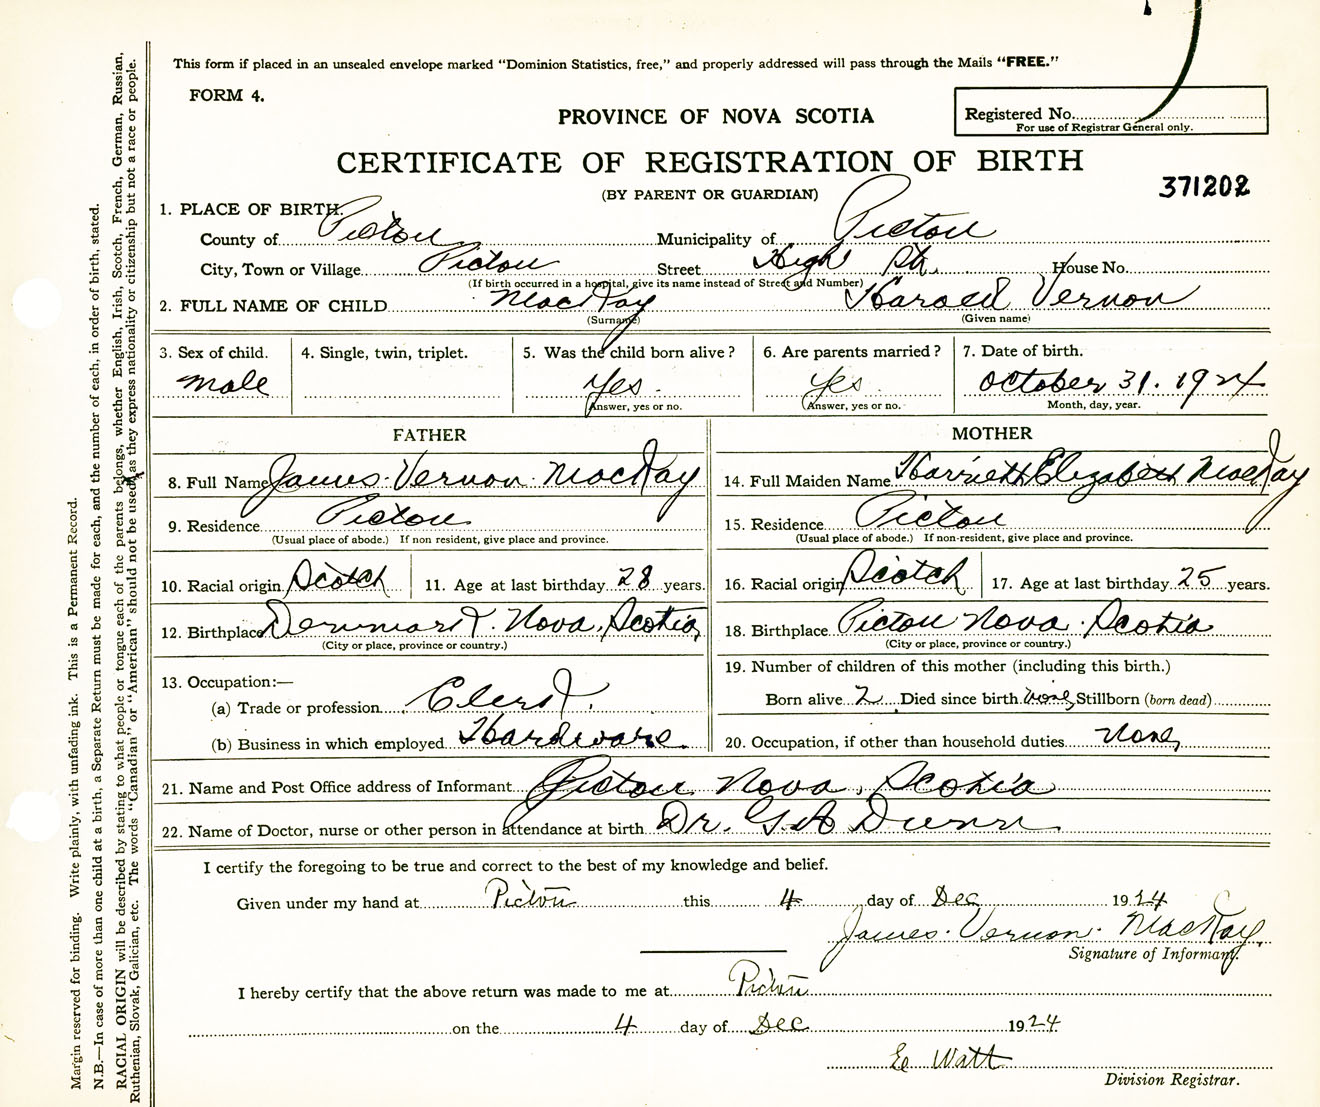 This form if placed in an unsealed envelope marked "Dominion Statistics, free," and properly addressed will pass through the Mails "FREE."
FORM 4.
PROVINCE OF NOVA SCOTIA
Registered No.
For use of Registrar General only.
CERTIFICATE OF REGISTRATION OF BIRTH
(BY PARENT OR GUARDIAN)
371202
1. PLACE OF BIRTH:
County of Pictou Municipality of Pictou
City, Town or Village Pictou Street High St. House No.
(If birth occurred in a hospital, give its name instead of Street and Number)
2. FULL NAME OF CHILD MacKay Harold Vernon
(Surname) (Given name)
3. Sex of child. 4. Single, twin, triplet. 5. Was the child born alive? 6. Are parents married? 7. Date of birth.
male Yes. Yes October 31. 1924
Answer, yes or no. (Answer, yes or no. Month, day, year.
FATHER MOTHER
8. Full Name James Vernon MacKay 14. Full Maiden Name Harriett Elizabeth MacKay
9. Residence Pictou 15. Residence Pictou
(Usual place of abode.) If non resident, give place and province. (Usual place of abode.) If non-resident, give place and province.
10. Racial origin Scotch 11. Age at last birthday 28 years. 16. Racial origin Scotch 17. Age at last birthday 25 years.
12. Birthplace Denmark. Nova Scotia 18. Birthplace Pictou Nova Scotia
(City or place, province or country.) (City or place, province or country.)
13. Occupation:— 19. Number of children of this mother (including this birth.)
(a) Trade or profession Clerk. Born alive 2 Died since birth none Stillborn (born dead)
(b) Business in which employed Hardware 20. Occupation, if other than household duties None
21. Name and Post Office address of Informant Pictou Nova Scotia
22. Name of Doctor, nurse or other person in attendance at birth Dr. G A Dunn
I certify the foregoing to be true and correct to the best of my knowledge and belief.
Given under my hand at Pictou this 4 day of Dec 1924
James Vernon MacKay
Signature of Informant.
I hereby certify that the above return was made to me at Pictou
on the 4 day of Dec 1924
Watt
Division Registrar.
Margin reserved for binding. Write plainly, with unfading ink. This is a Permanent Record.
N.B.—In case of more than one child at a birth, a Separate Return must be made for each, and the number of each, in order of birth, stated.
RACIAL ORIGIN will be described by stating to what people or tongue each of the parents belongs, whether English, Irish, Scotch, French, German, Russian,
Ruthenian, Slovak, Galician, etc. The words "Canadian" or "American" should not be used as they express nationality or citizenship but not a race or people.